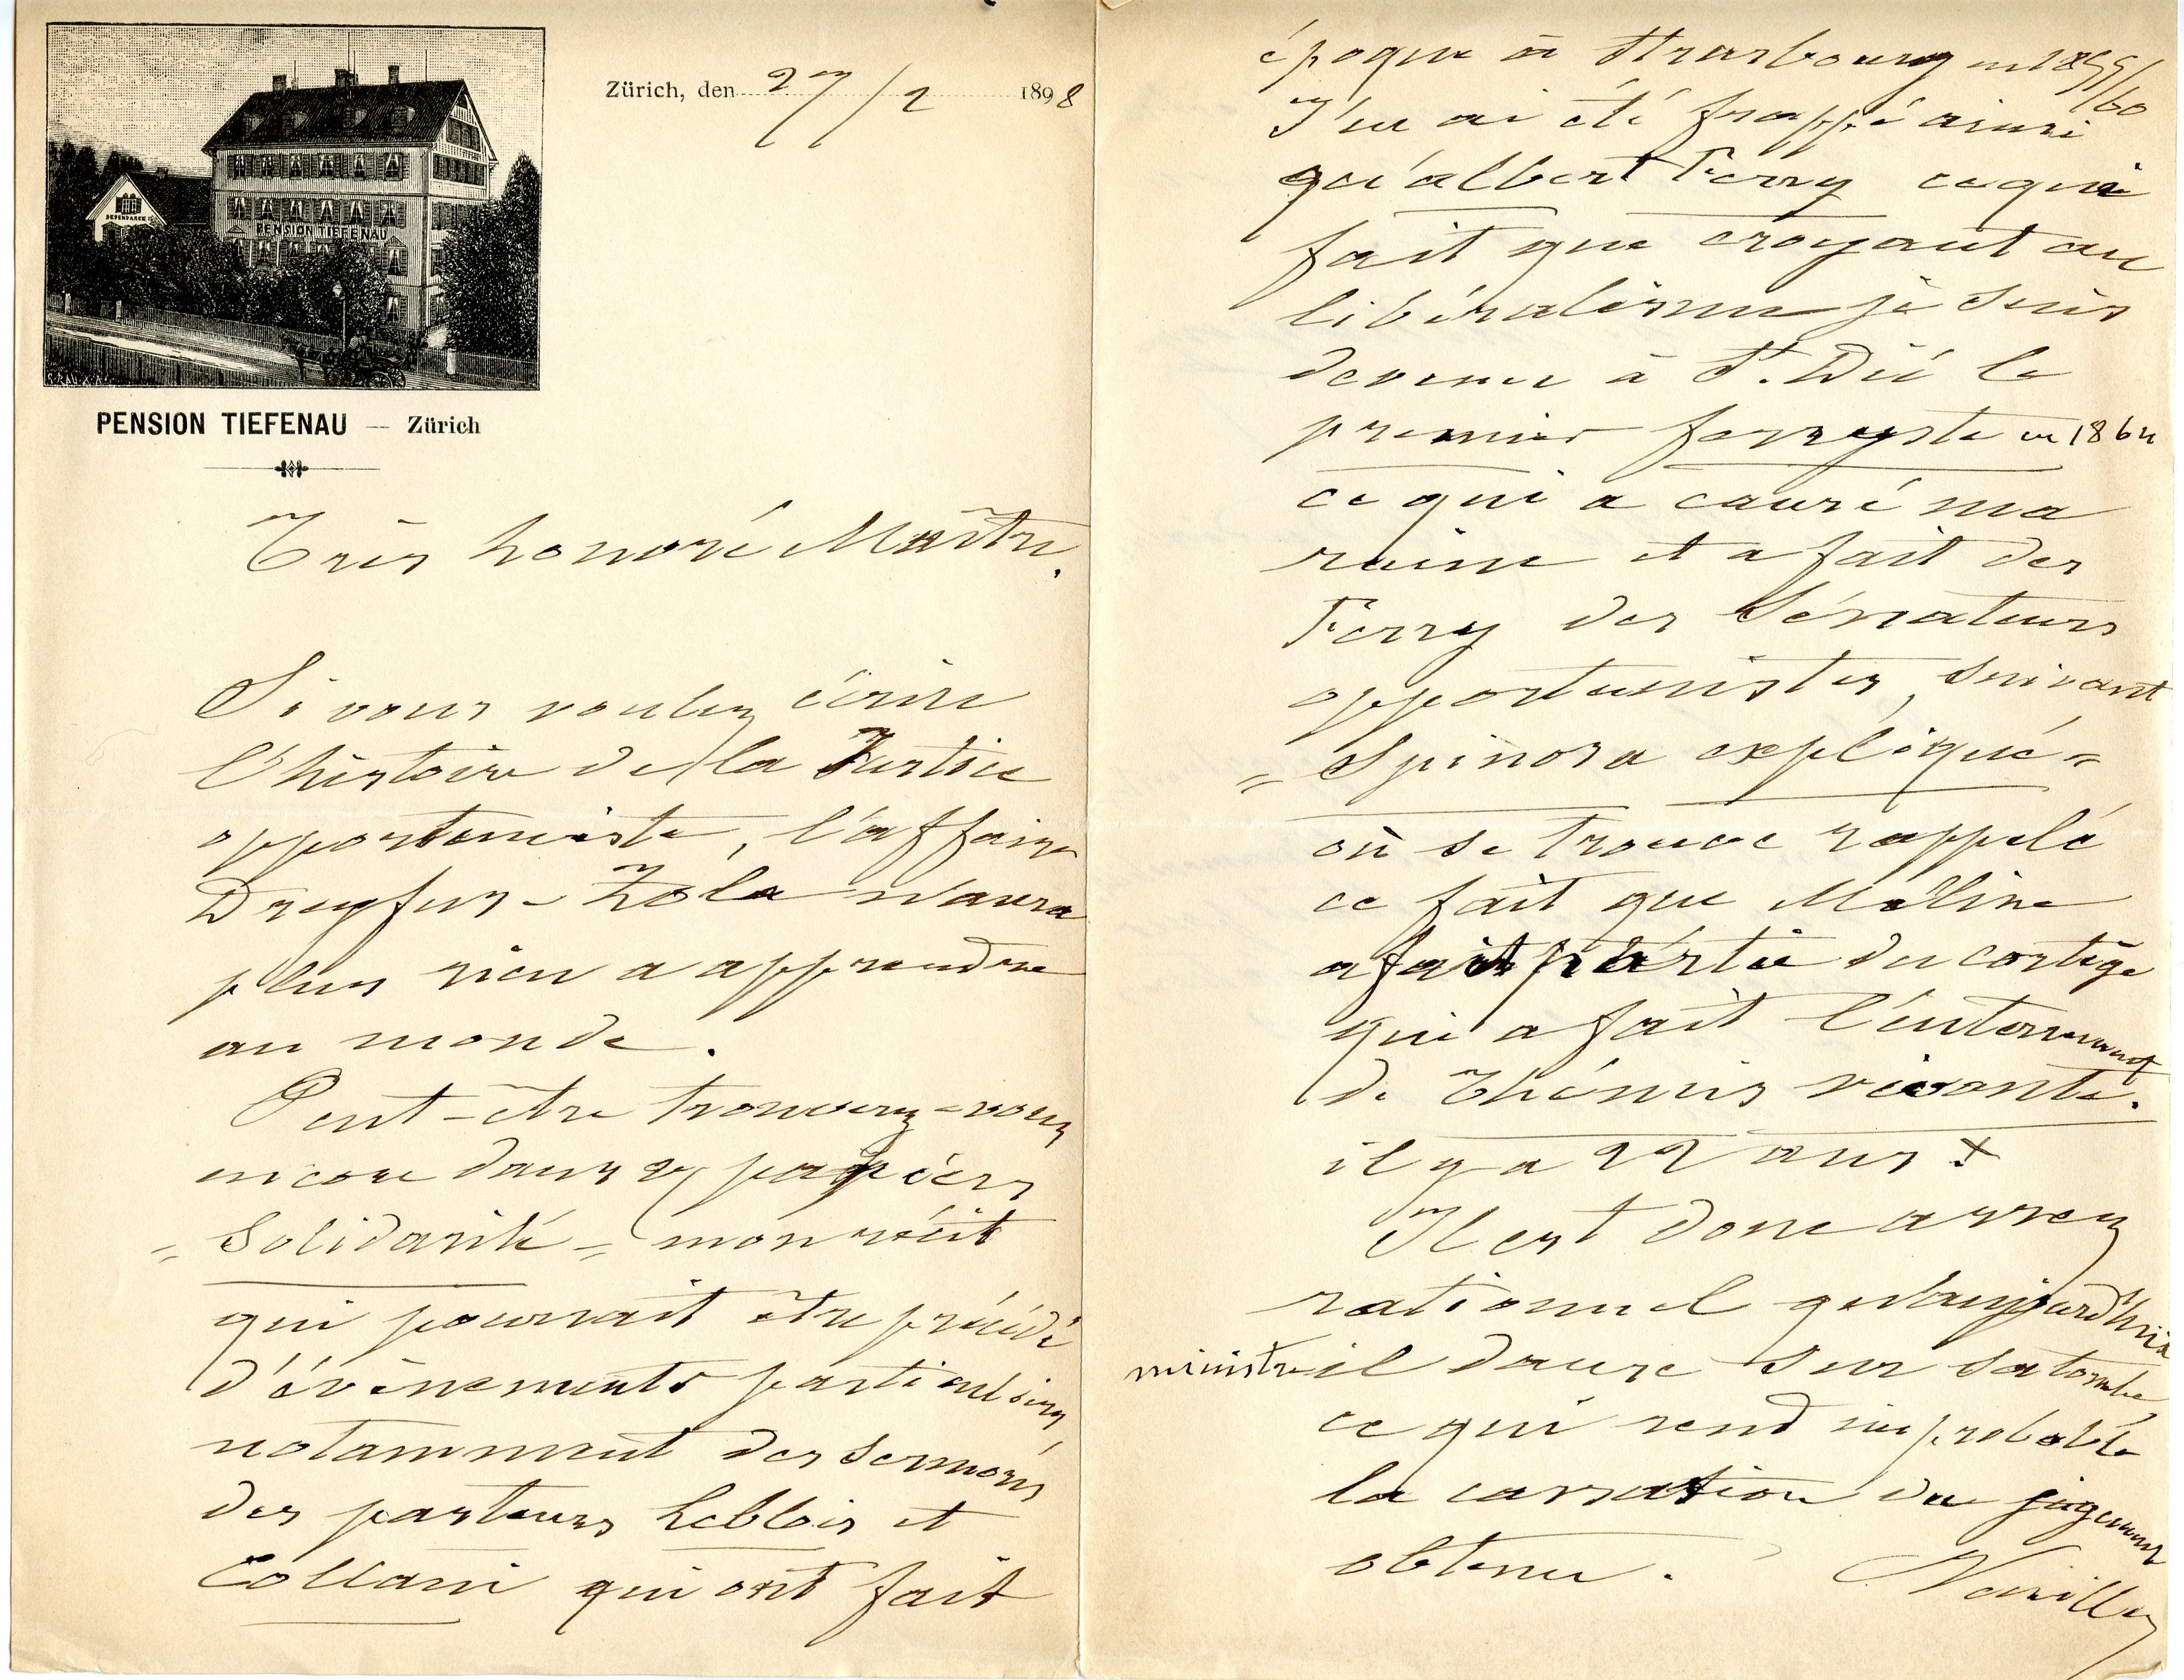 DEPENDANCE
PENSION TIEFENAU
PENSION TIEFENAU — Zürich
Zürich, den 27/2 1898
Très honoré Maître.
Si vous voulez écrire
l'histoire de la Justice
opportuniste, l'affaire
Dreyfus-Zola n'aura
plus rien a apprendre
au monde.
Peut-être trouverez-vous
encore dans vos papiers
"Solidarité" mon récit
qui pourrait être précédé
d'évènements particuliers
notamment des sermons
des pasteurs Leblois et
Collani qui ont fait
époque à Strasbourg en 1859/60
J'en ai été frappé ainsi
qu'albert Ferry ce qui
fait que croyant au
libéralisme je suis
devenu à St. Dié le
premier ferryste en 1864
ce qui a causé ma
ruine et a fait des
Ferry des Sénateurs
opportunistes, suivant
"Spinosa expliqué"
où se trouve rappelé
ce fait que Méline
a fait partie du cortège
qui a fait l'enterrement
de Thémis vivante.
il y a 22 ans !
Il est donc assez
rationnel qu'aujourd'hui
ministre il danse sur sa tombe,
ce qui rend improbable
la cassation du jugement
obtenu.